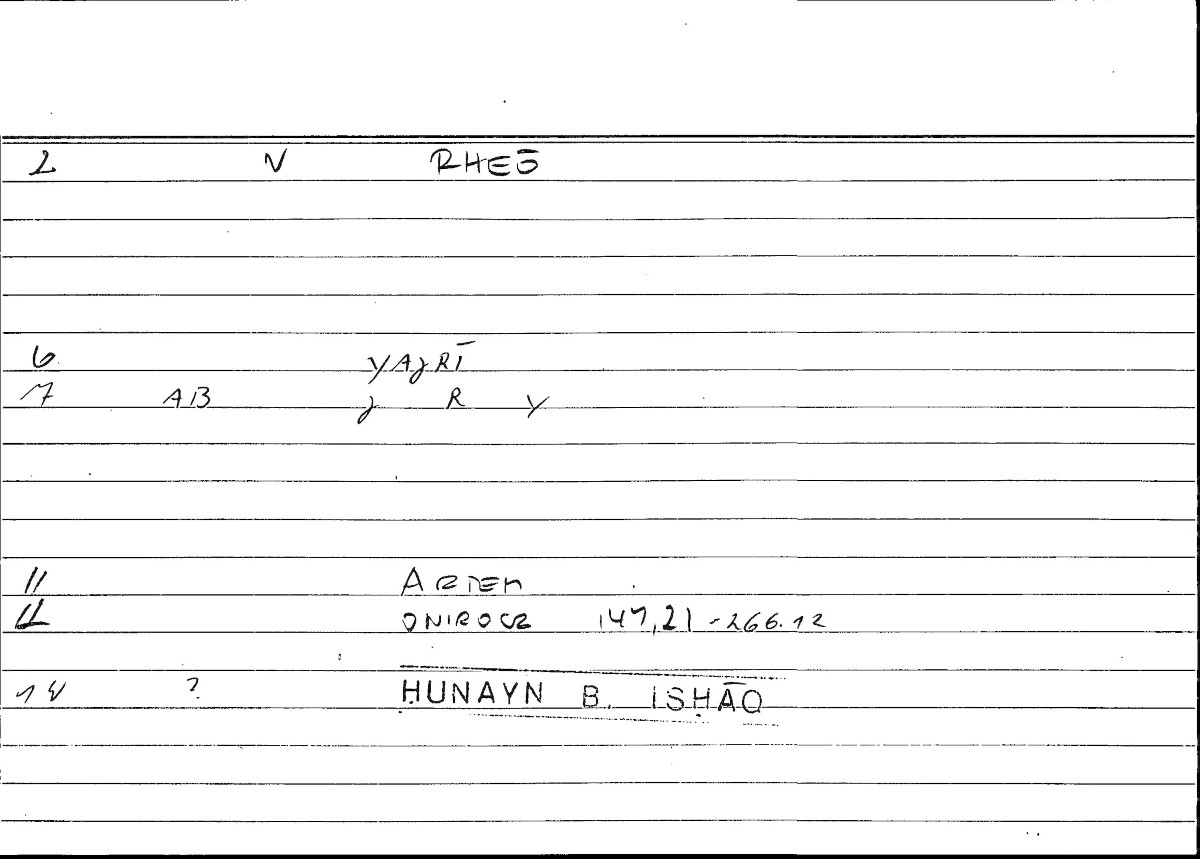 2 V RHEŌ
6 YAJRĪ
7 AB J R Y
11 ARTEM
12 ONIROCR 147,21-266.12
14 ? ḤUNAYN B. ISḤĀQ